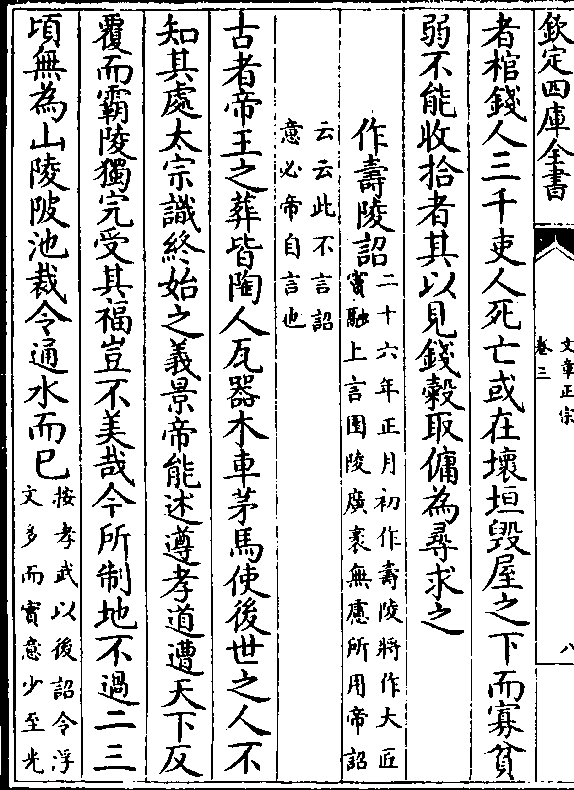 欽定四庫全書
文章正宗
卷三
八
者棺錢人三千吏人死亡或在壞垣毀屋之下而寡貧
弱不能收拾者其以見錢穀取傭為尋求之
作壽陵詔
二十六年正月初作壽陵將作大匠
竇融上言園陵廣袤無慮所用帝詔
云云此不言詔
意必帝自言也
古者帝王之葬皆陶人瓦器木車茅馬使後世之人不
知其處太宗識終始之義景帝能述遵孝道遭天下反
覆而霸陵獨完受其福豈不美哉今所制地不過二三
頃無為山陵陂池裁令通水而已
按孝武以後詔令浮
文多而實意少至光